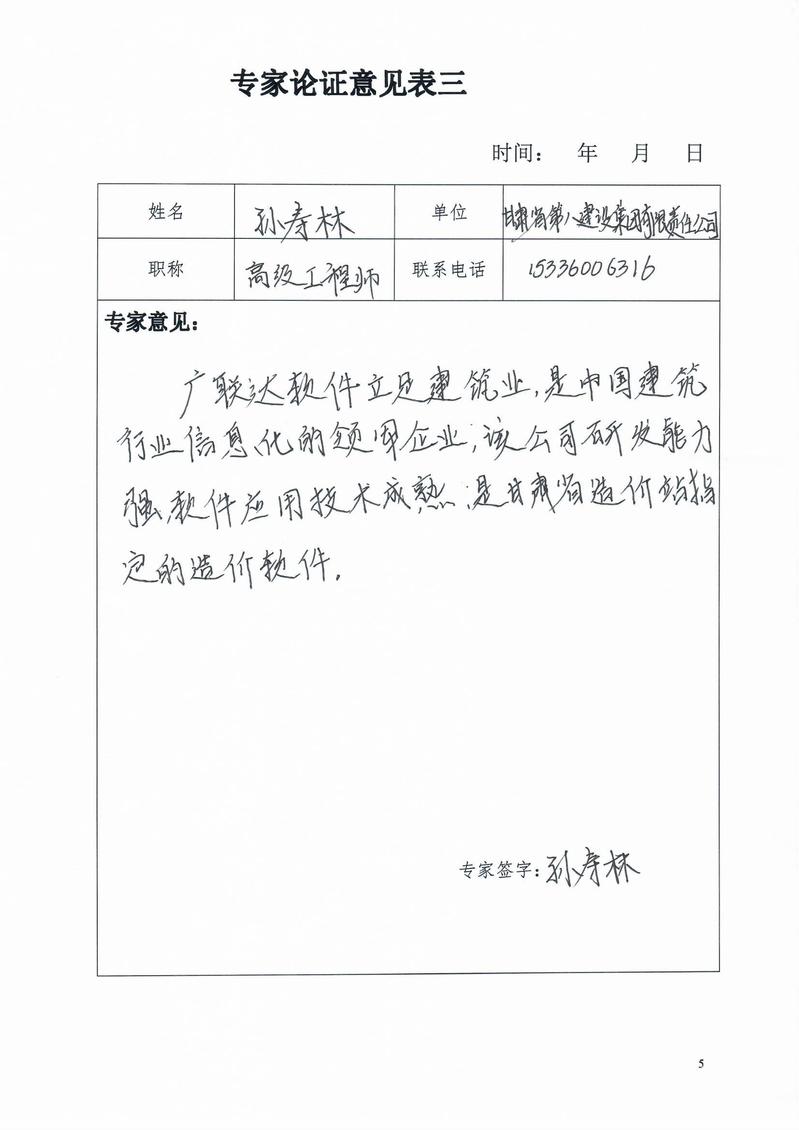 专家论证意见表三
时间： 年 月 日
姓名 孙寿林 单位 甘肃省第八建设集团有限责任公司
职称 高级工程师 联系电话 15336006316
专家意见：
广联达软件立足建筑业，是中国建筑
行业信息化的领军企业，该公司研发能力
强，软件应用技术成熟，是甘肃省造价站指
定的造价软件。
专家签字：孙寿林
5